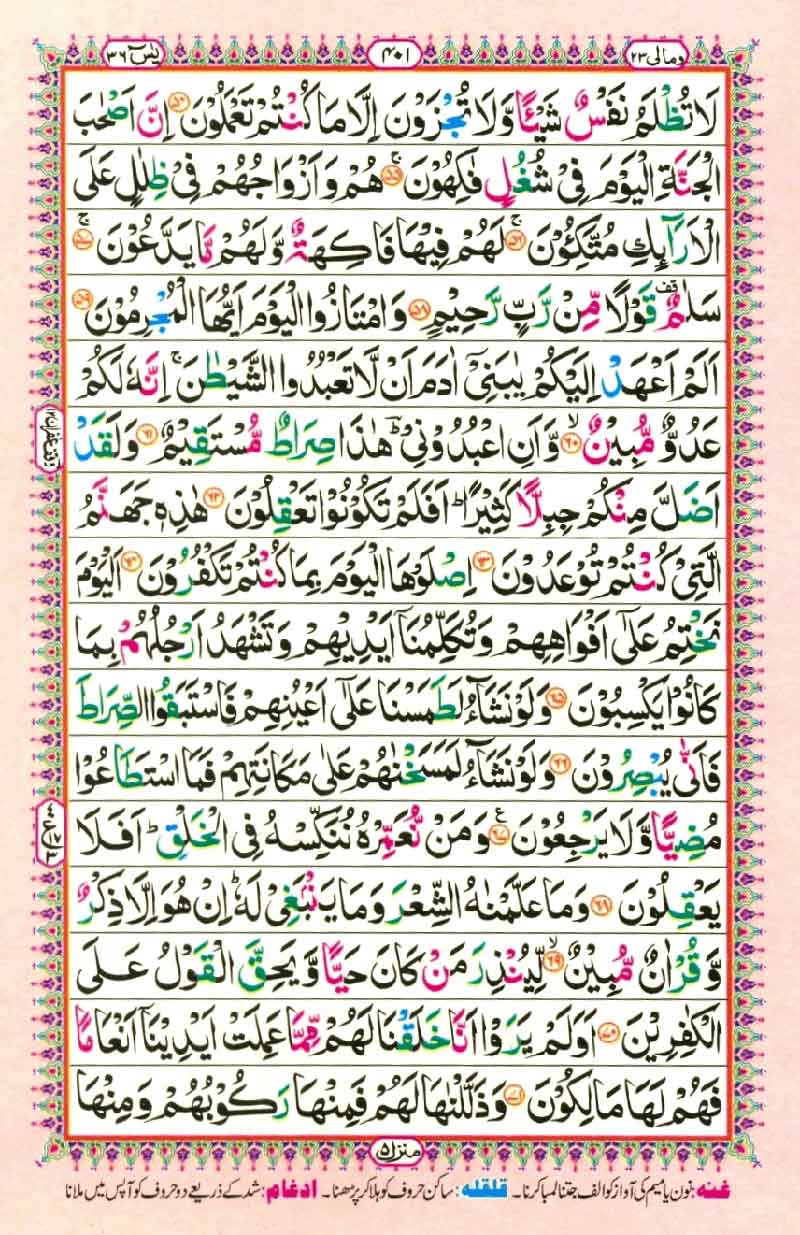 يٰسٓ ٣٦ ٤٠١ ومالی ٢٣
لَا تُظْلَمُ نَفْسٌ شَيْـًٔا وَّلَا تُجْزَوْنَ اِلَّا مَا كُنْتُمْ تَعْمَلُوْنَ ۝٥٤ اِنَّ اَصْحٰبَ
الْجَنَّةِ الْيَوْمَ فِيْ شُغُلٍ فٰكِهُوْنَ ۝٥٥ۚ هُمْ وَاَزْوَاجُهُمْ فِيْ ظِلٰلٍ عَلَى
الْاَرَآىِٕكِ مُتَّكِـُٔوْنَ ۝٥٦ۚ لَهُمْ فِيْهَا فَاكِهَةٌ وَّلَهُمْ مَّا يَدَّعُوْنَ ۝٥٧ۚ
سَلٰمٌ ۣقف قَوْلًا مِّنْ رَّبٍّ رَّحِيْمٍ ۝٥٨ وَامْتَازُوا الْيَوْمَ اَيُّهَا الْمُجْرِمُوْنَ ۝٥٩
اَلَمْ اَعْهَدْ اِلَيْكُمْ يٰبَنِيْٓ اٰدَمَ اَنْ لَّا تَعْبُدُوا الشَّيْطٰنَ ۚ اِنَّهٗ لَكُمْ
عَدُوٌّ مُّبِيْنٌ ۝٦٠ۙ وَّاَنِ اعْبُدُوْنِيْ ؕ هٰذَا صِرَاطٌ مُّسْتَقِيْمٌ ۝٦١ وَلَقَدْ
اَضَلَّ مِنْكُمْ جِبِلًّا كَثِيْرًا ؕ اَفَلَمْ تَكُوْنُوْا تَعْقِلُوْنَ ۝٦٢ هٰذِهٖ جَهَنَّمُ
الَّتِيْ كُنْتُمْ تُوْعَدُوْنَ ۝٦٣ اِصْلَوْهَا الْيَوْمَ بِمَا كُنْتُمْ تَكْفُرُوْنَ ۝٦٤ اَلْيَوْمَ
نَخْتِمُ عَلٰٓى اَفْوَاهِهِمْ وَتُكَلِّمُنَآ اَيْدِيْهِمْ وَتَشْهَدُ اَرْجُلُهُمْ بِمَا
كَانُوْا يَكْسِبُوْنَ ۝٦٥ وَلَوْ نَشَآءُ لَطَمَسْنَا عَلٰٓى اَعْيُنِهِمْ فَاسْتَبَقُوا الصِّرَاطَ
فَاَنّٰى يُبْصِرُوْنَ ۝٦٦ وَلَوْ نَشَآءُ لَمَسَخْنٰهُمْ عَلٰى مَكَانَتِهِمْ فَمَا اسْتَطَاعُوْا
مُضِيًّا وَّلَا يَرْجِعُوْنَ ۝٦٧ۧ وَمَنْ نُّعَمِّرْهُ نُنَكِّسْهُ فِي الْخَلْقِ ؕ اَفَلَا
يَعْقِلُوْنَ ۝٦٨ وَمَا عَلَّمْنٰهُ الشِّعْرَ وَمَا يَنْۢبَغِيْ لَهٗ ؕ اِنْ هُوَ اِلَّا ذِكْرٌ
وَّقُرْاٰنٌ مُّبِيْنٌ ۝٦٩ۙ لِّيُنْذِرَ مَنْ كَانَ حَيًّا وَّيَحِقَّ الْقَوْلُ عَلَى
الْكٰفِرِيْنَ ۝٧٠ اَوَلَمْ يَرَوْا اَنَّا خَلَقْنَا لَهُمْ مِّمَّا عَمِلَتْ اَيْدِيْنَآ اَنْعَامًا
فَهُمْ لَهَا مَالِكُوْنَ ۝٧١ وَذَلَّلْنٰهَا لَهُمْ فَمِنْهَا رَكُوْبُهُمْ وَمِنْهَا
منزل ٥
غنه: نون یا میم کی آواز کو الف جتنا لمبا کرنا۔ قلقله: ساکن حروف کو ہلا کر پڑھنا۔ ادغام: شد کے ذریعے دو حروف کو آپس میں ملانا